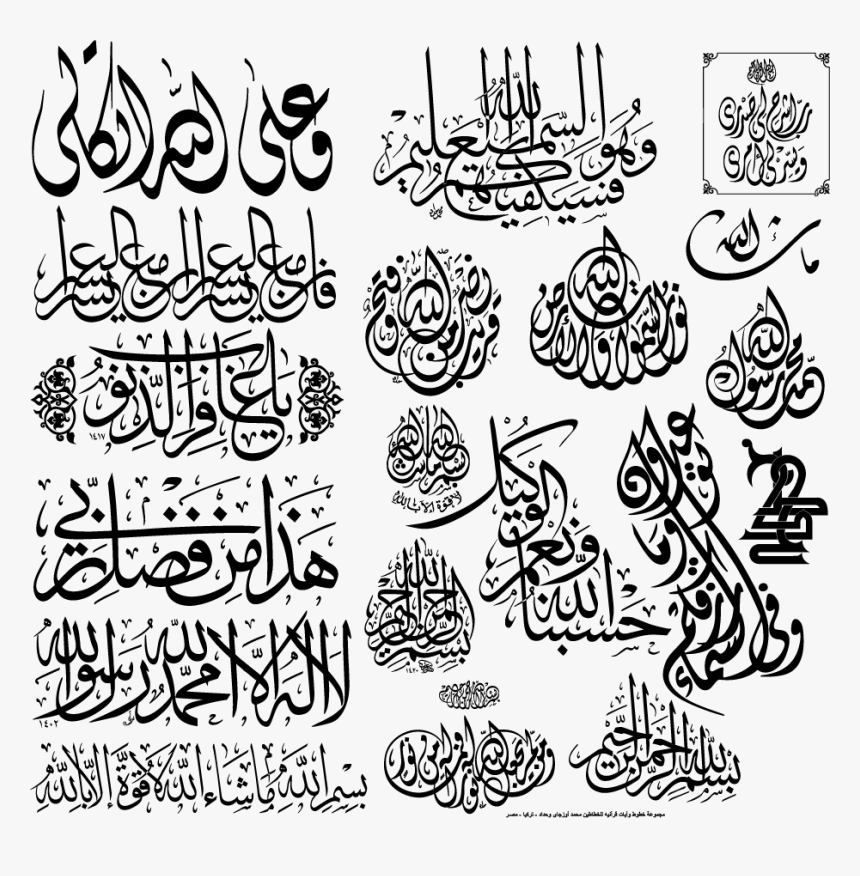 وعلى الله اتكالى
وهو السميع العليم
فسيكفيكهم الله
رب اشرح لي صدري
ويسر لي امري
فان مع العسر يسرا ان مع العسر يسرا
ما شاء الله
نصر من الله وفتح قريب
الله نور السموات والأرض
محمد رسول الله
يا غافر الذنوب
١٤١٧
بسم الله ما شاء الله
لا قوة الا بالله
حسبنا الله ونعم الوكيل
وفي السماء رزقكم وما توعدون
هذا من فضل ربي
بسم الله الرحمن الرحيم
١٤٢٠
لا اله الا الله محمد رسول الله
١٤٠٢
بسم الله الرحمن الرحيم
بسم الله الرحمن الرحيم
بسم الله ما شاء الله لا قوة إلا بالله
مجموعة خطوط وآيات قرآنيه للخطاطين محمد أوزجاى وحداد - تركيا - مصر